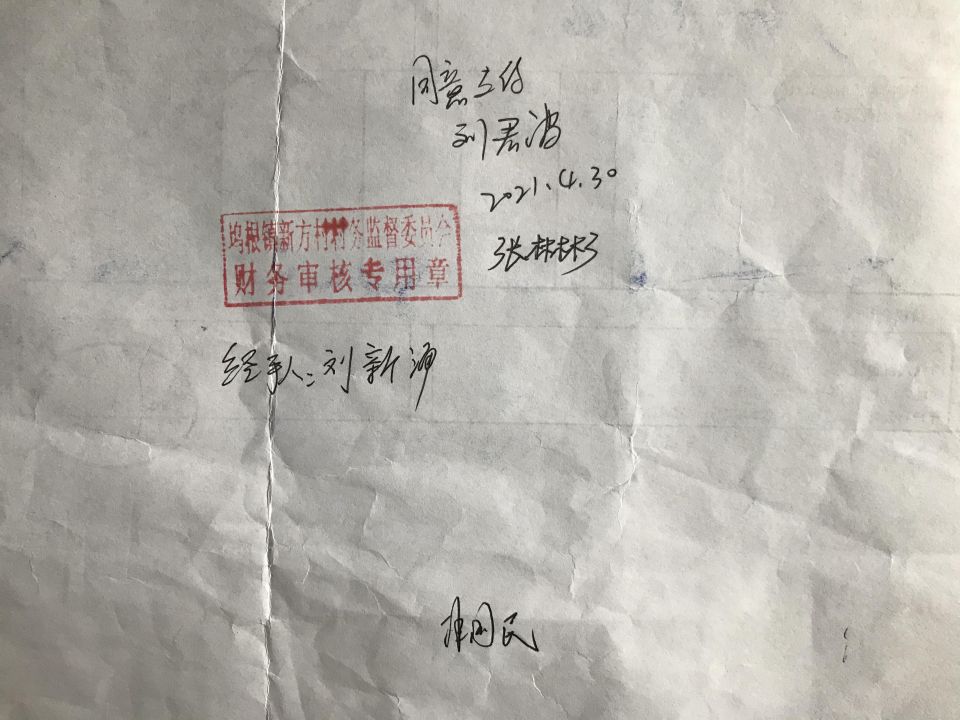 同意支付
刘君波
2021.4.30
坞根镇新方村村务监督委员会
财务审核专用章
张彬彬
经手人:刘新
国民